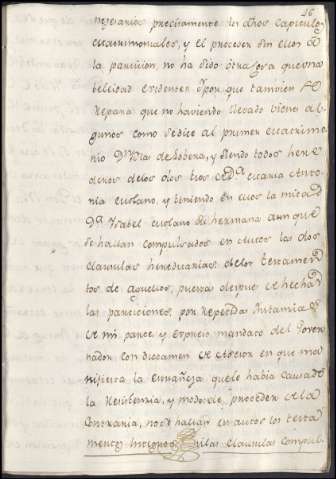 16
nezesarias precisamente los dhos Capitulos
matrimoniales, y el proceder sin ellos a
la particion no ha sido otra cosa que una
nulidad evidente por que tambien se
repara que no haviendo llevado vienes al
gunos como se dice al primer matrimo
nio Dn. de y siendo todos here
deros de los dos tres Da. Maria Anto
nia y teniendo en ellos la mitad
Da. Ysabel su hermana aun que
se hallan compulsados en autos las dos
clausulas hereditarias de los testamen
tos de aquellos, puestas despues de hechas
las particiones por repetidas Instancias
de mi parte y expreso mandato del Gover
nador con dictamen de Asesor en que ma
nifiesta la estrañeza que le havia causado
la resistencia, y modo de proceder de la
Contraria, no se hallan en autos los testa
mentos integros, ni las clausulas compul